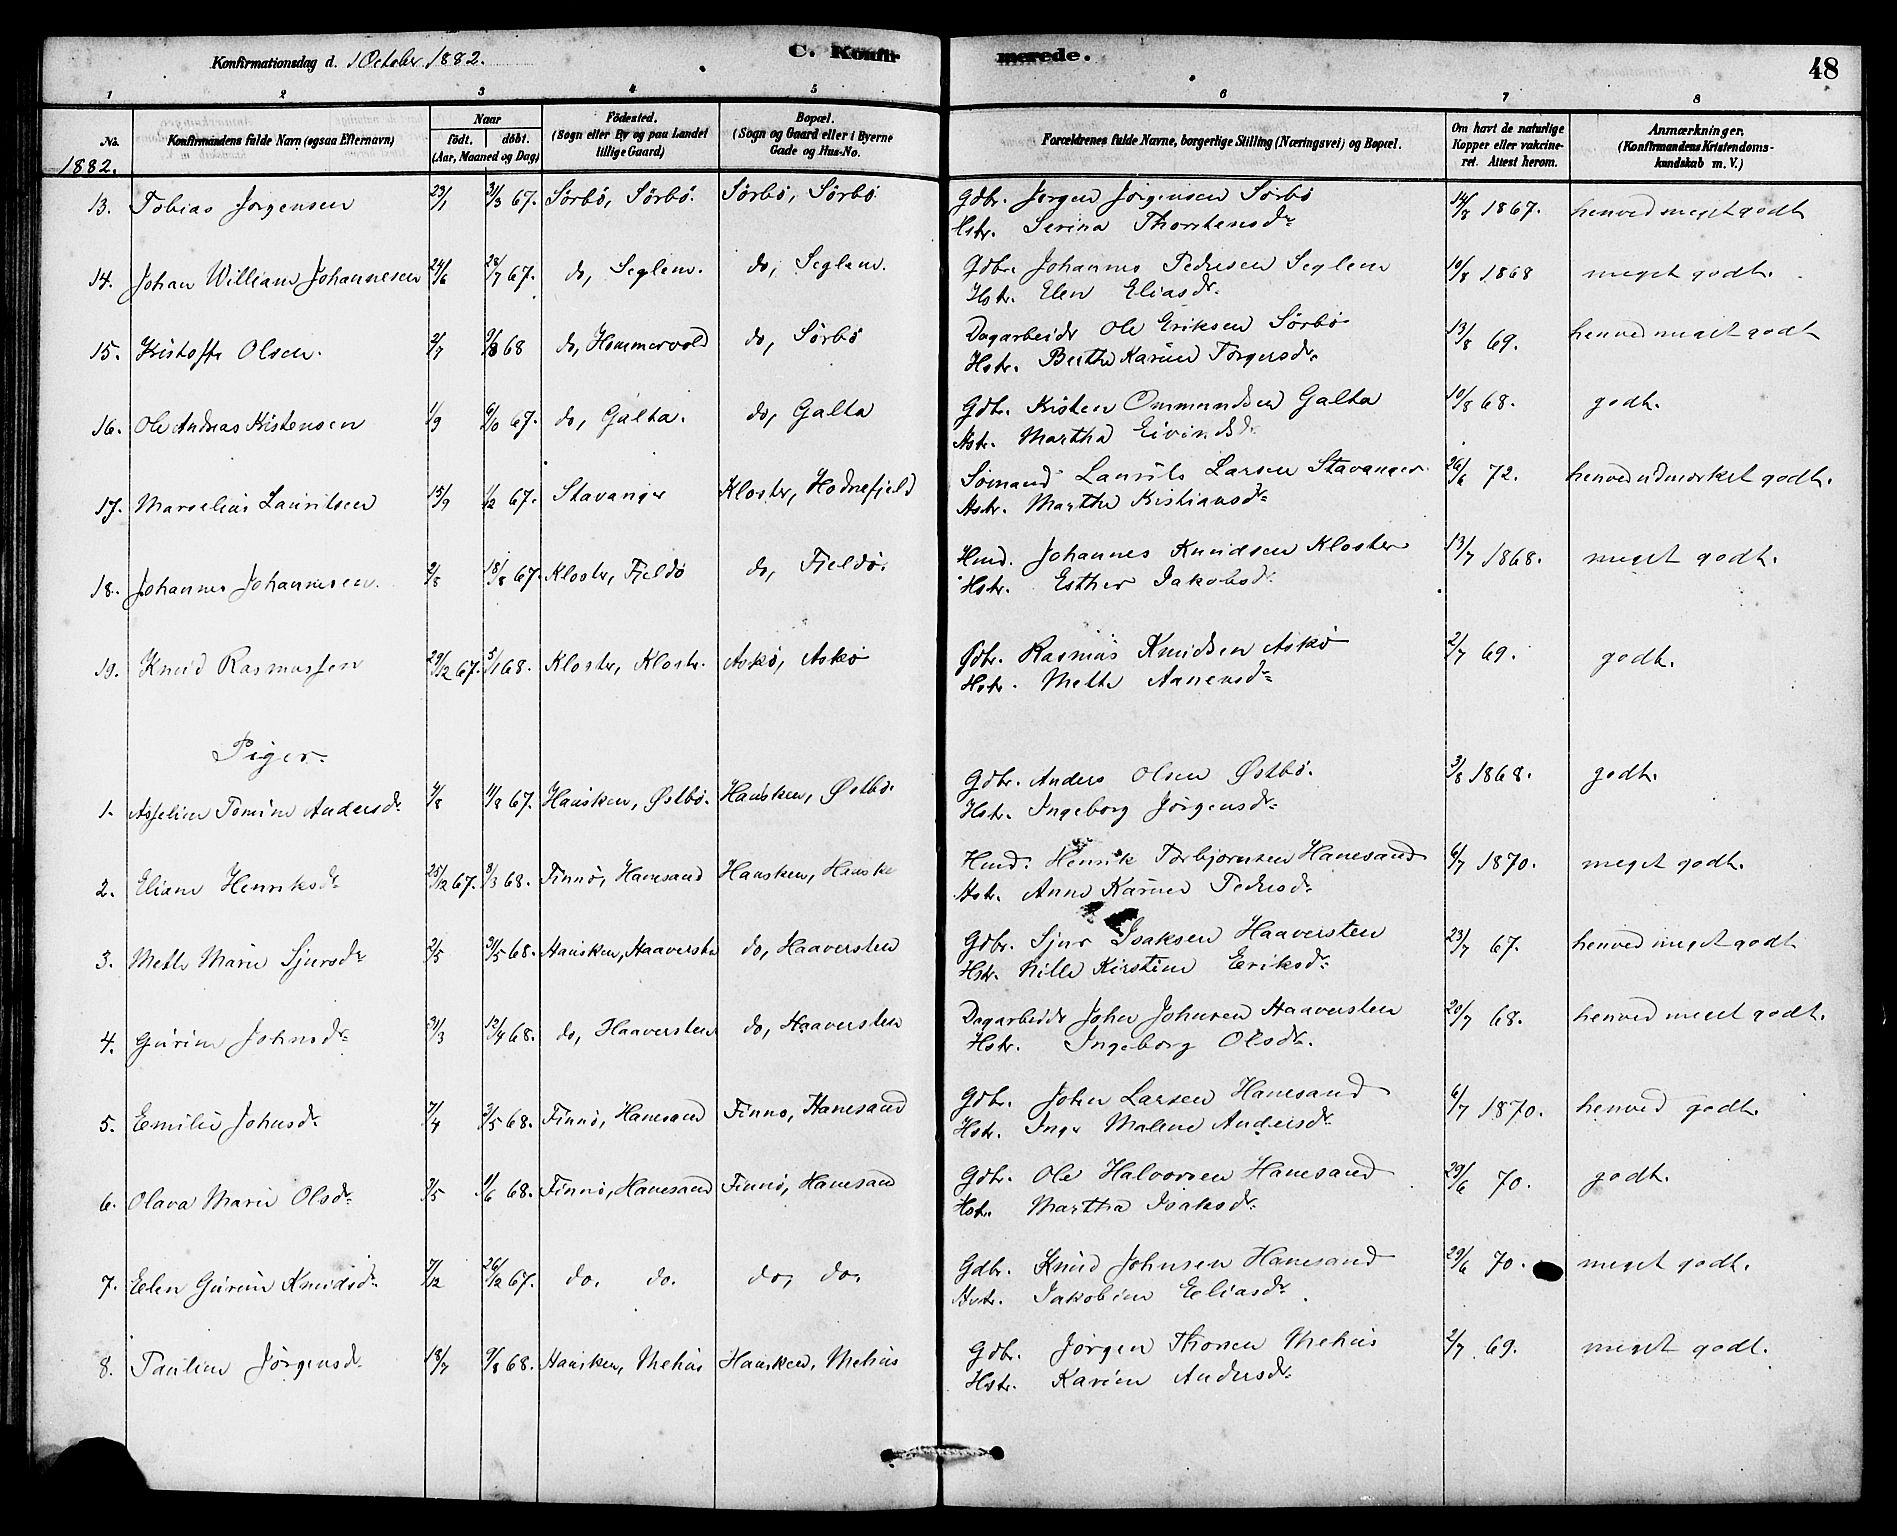 Konfirmationsdag d. 1 October 1882.
C. Konfirmerede.
48
1 2 3 4 5 6 7 8
No. Konfirmandens fulde Navn (ogsaa Efternavn) Naar født. døbt. (Aar, Maaned og Dag) Fødested. (Sogn eller By og paa Landet tillige Gaard) Bopæl. (Sogn og Gaard eller i Byerne Gade og Hus-No. Forældrenes fulde Navne, borgerlige Stilling (Næringsvei) og Bopæl. Om havt de naturlige Kopper eller vakcineret. Attest herom. Anmærkninger. (Konfirmandens Kristendomskundskab m. V.)
1882.
13. Tobias Jørgensen 23/1 31/3 67. Sørbø, Sørbø. Sørbø, Sørbø Gdbr. Jørgen Jørgensen Sørbø 14/7 1867. henved meget godt
Hstr. Serina Thorstensdr
14. Johan William Johannesen 24/6 28/7 67. do, Seglem. do, Seglem. Gdbr. Johannes Pedersen Seglem 10/8 1868 meget godt.
Hstr. Elen Eliasdr.
15. Kristoffe Olsen. 2/7 9/8 68 do, Hommervold do, Sørbø Dagarbeidr Ole Eriksen Sørbø 13/8 69. henved meget godt
Hstr. Berthe Karine Torgersdr.
16. Ole Andreas Kristensen 1/9 6/10 67. do, Galta. do, Galta Gdbr. Kristen Ommundsen Galta 10/8 68. godt.
Hstr. Martha Eivindsdr.
17. Marselius Lauritsen 15/9 1/12 67. Stavanger Kloster, Hodnefjeld Sømand Laurits Larsen Stavanger 26/6 72. henved udmærket godt.
Hstr. Marthe Kristiansdr
18. Johannes Johannesen. 2/8 18/8 67. Kloster, Fjeldø do, Fjeldø. Hmd. Johannes Knudsen Kloster 13/7 1868. meget godt.
Hstr. Esther Jakobsdr.
19. Knud Rasmussen 29/12 67. 5/1 68. Kloster, Kloster. Askø, Askø Gdbr. Rasmus Knudsen Askø 2/7 69. godt.
Hstr. Mette Aanensdr
Piger
1. Asseline Tomine Andersdr 4/8 11/8 67. Hausken, Østbø. Hausken, Østbø. Gdbr. Anders Olsen Østbø. 3/8 1868. godt.
Hstr. Ingeborg Jørgensdr.
2. Eliane Henriksdr 25/12 67. 8/3 68. Finnø, Hanesand Hausken, Hauske Hmd. Henrik Torbjørnsen Hanesand 6/7 1870. meget godt.
Hstr. Anne Karine Pedersdr.
3. Mette Marie Sjursdr 2/5 31/5 68. Hausken, Haaversten do, Haaversten Gdbr. Sjur Isaksen Haaversten 23/7 67. henved meget godt
Hstr. Nille Kirstine Eriksdr.
4. Gurine Johnsdr 31/3 12/4 68. do, Haaversten do, Haaversten Dagarbeidr John Johnsen Haaversten 20/7 68. henved meget godt.
Hstr. Ingeborg Olsdr.
5. Emilie Johnsdr. 7/4 3/5 68. Finnø, Hanesand Finnø, Hanesand Gdbr. John Larsen Hanesand 6/7 1870. henved godt.
Hstr. Inger Malene Andersdr
6. Olava Marie Olsdr. 3/5 1/6 68. Finnø, Hanesand Finnø, Hanesand Gdbr. Ole Halvorsen Hanesand 29/6 70. godt.
Hstr. Martha Isaksdr.
7. Elen Gurine Knudsdr. 7/12 26/12 67. do. do. do, do. Gdbr. Knud Johnsen Hanesand 29/6 70. meget godt.
Hstr. Jakobine Eliasdr.
8. Pauline Jørgensdr. 18/7 9/8 68. Hausken, Mehus Hausken, Mehus Gdbr. Jørgen Thorsen Mehus 2/7 69. meget godt.
Hstr. Karine Andersdr.